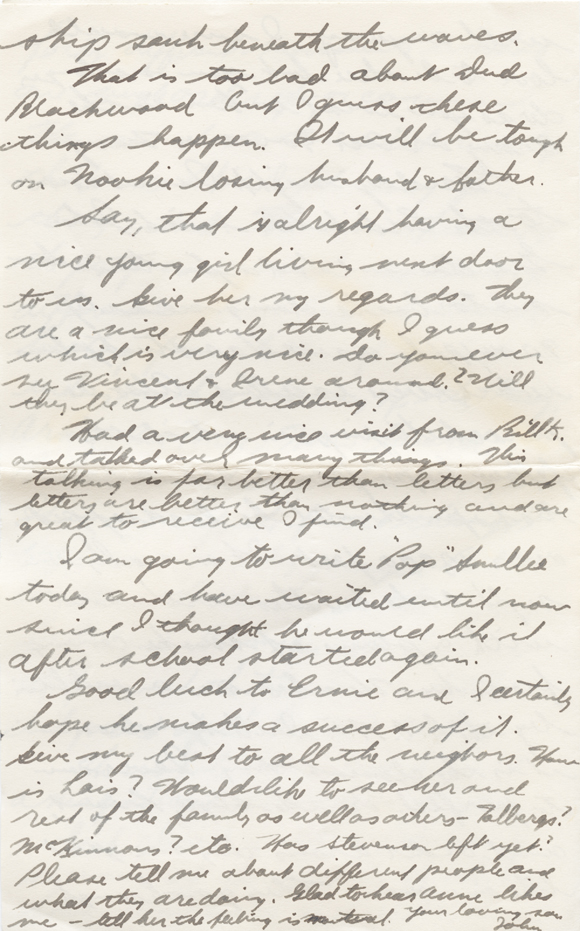 ship sank beneath the waves.
That is too bad about Dud
Blackwood but I guess these
things happen. It will be tough
on Nookie losing husband & father.
Say, that is alright having a
nice young girl living next door
to us. Give her my regards. They
are a nice family though I guess
which is very nice. Do you ever
see Vincent & Irene around? Will
they be at the wedding?
Had a very nice visit from Bill K.
and talked over many things. This
talking is far better than letters but
letters are better than nothing and are
great to receive I find.
I am going to write "Pop" Smullee
today and have waited until now
since I thought he would like it
after school started again.
Good luck to Ernie and I certainly
hope he makes a success of it.
Give my best to all the neighbors. How
is Lois? Would like to see her and
rest of the family as well as others - Talbergs?
McKinnons? etc. Has Stevenson left yet?
Please tell me about different people and
what they are doing. Glad to hear Anne likes
me - tell her the feeling is mutual. Your loving son
John